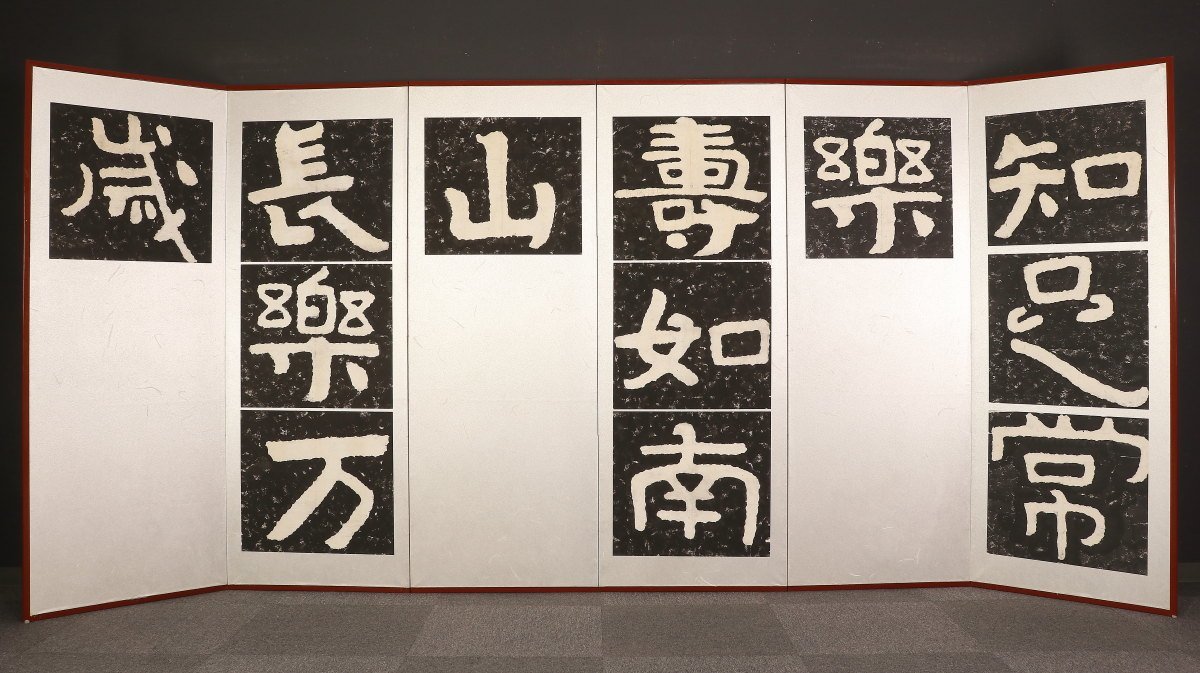 知足常
樂
壽如南
山
長樂万
歳